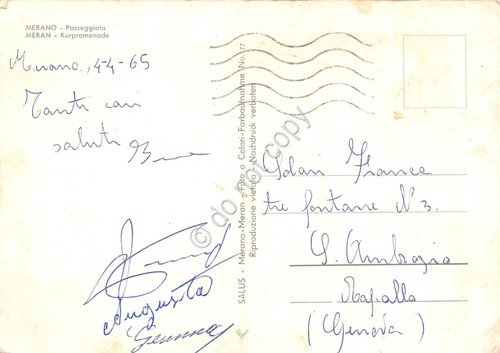 MERANO - Passeggiata
MERAN - Kurpromenade
Merano, 4-4-65
Tanti cari
saluti
Augusta
Gemma
SALUS - Merano-Meran - Foto a Colori-Farbaufnahme No. 77
Riproduzione vietata - Nachdruck verboten
Solari Franca
tre fontane N 3.
S. Ambrogio
Rapallo
(Genova)
© do not copy